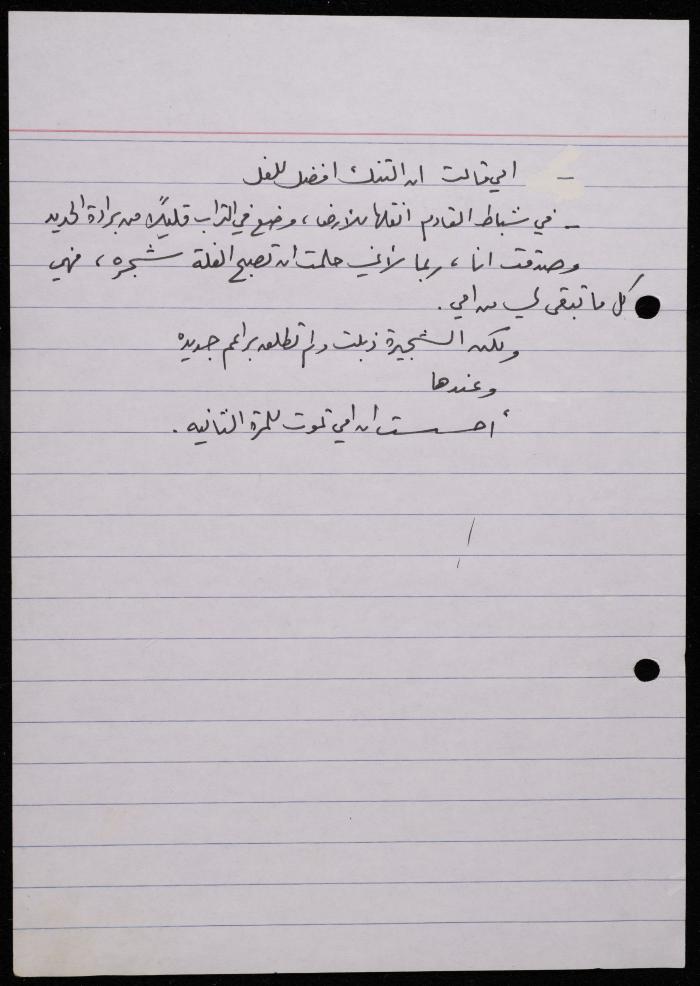 - امي قالت ان التنك افضل للفل
- في شباط القادم انقلها للارض ، وضع في التراب قليلاً من برادة الحديد
وصدقت انا ، ربما لأني حلمت ان تصبح الفلة شجره ، فهي
كل ما تبقى لي من امي .
ولكن الشجيرة ذبلت ولم تطلع براعم جديده
وعندها
أحسست ان امي تموت للمرة الثانيه .